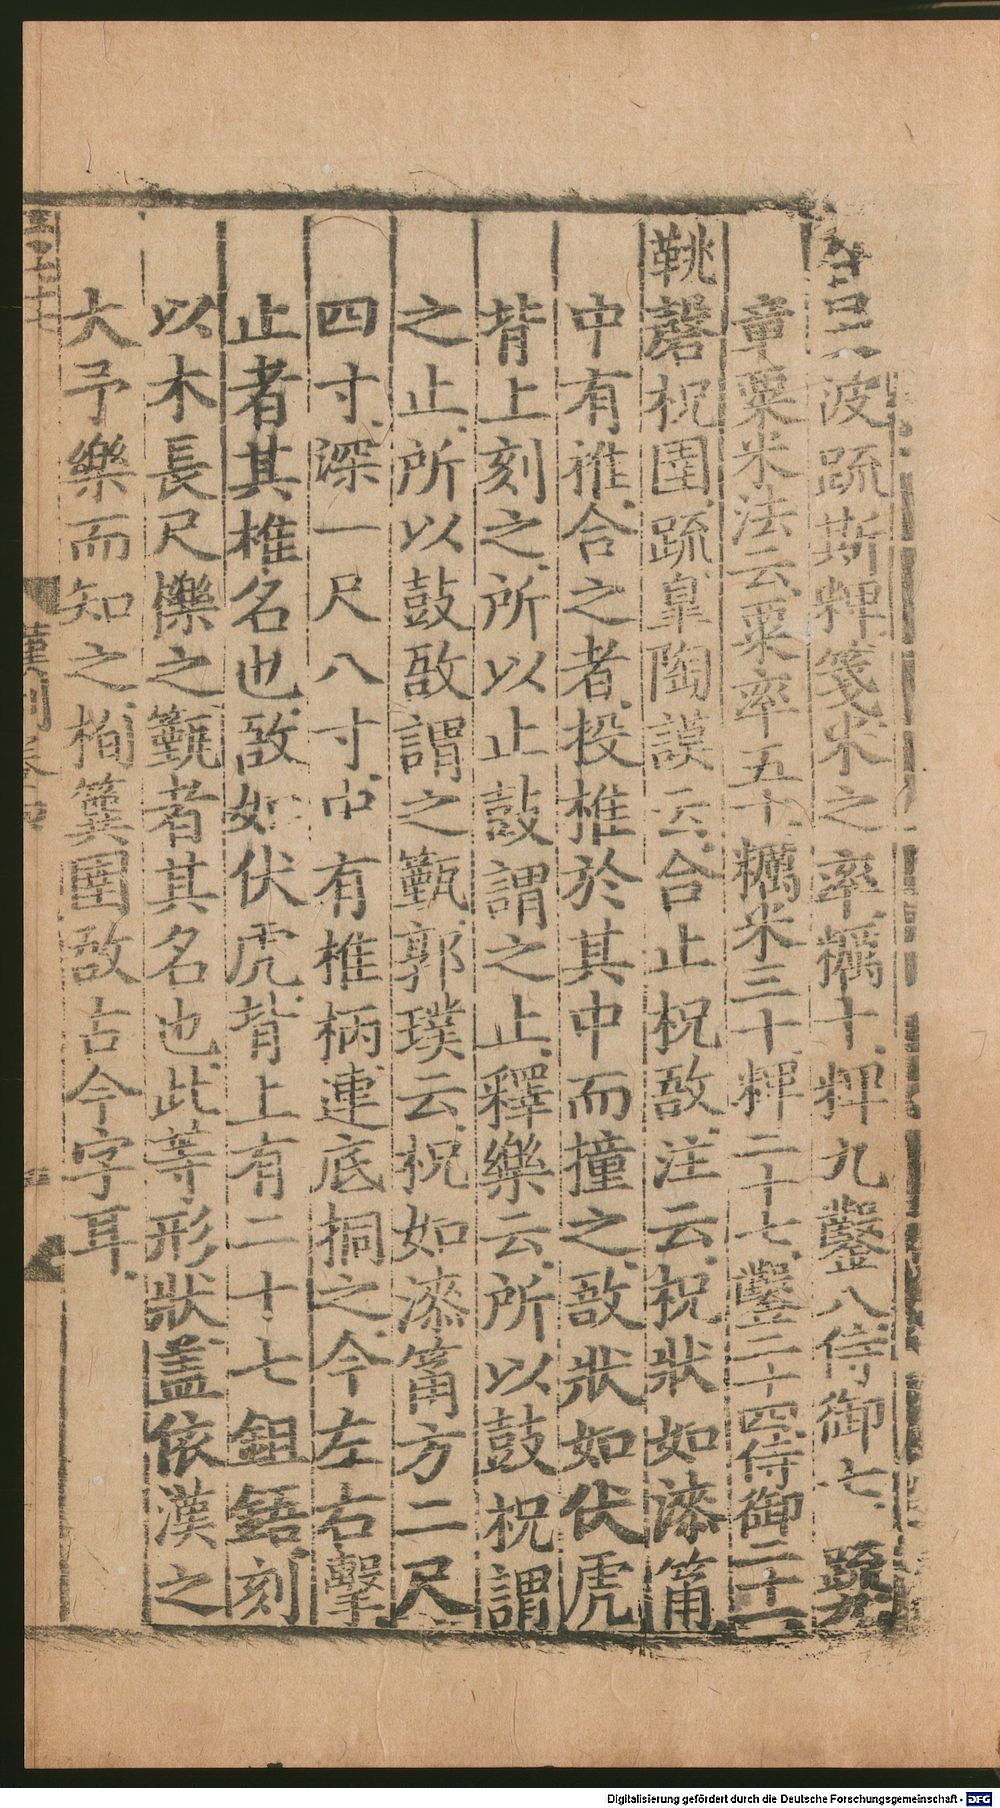 召旻 波疏斯粺箋米之率糲十粺九鑿八侍御七 疏九
章粟米法云粟率五十糲米三十粺二十七鑿二十四侍御二十一
鞉磬柷圉疏皐陶謨云合止柷敔注云柷狀如漆筩
中有椎合之者投椎於其中而撞之敔狀如伏虎
背上刻之所以止鼓謂之止釋樂云所以鼓柷謂
之止所以鼓敔謂之籈郭璞云柷如漆筩方二尺
四寸深一尺八寸中有椎柄連底挏之令左右擊
止者其椎名也敔如伏虎背上有二十七鉏鋙刻
以木長尺櫟之籈者其名也此等形狀盖依漢之
大予樂而知之栒簨圉敔古今字耳